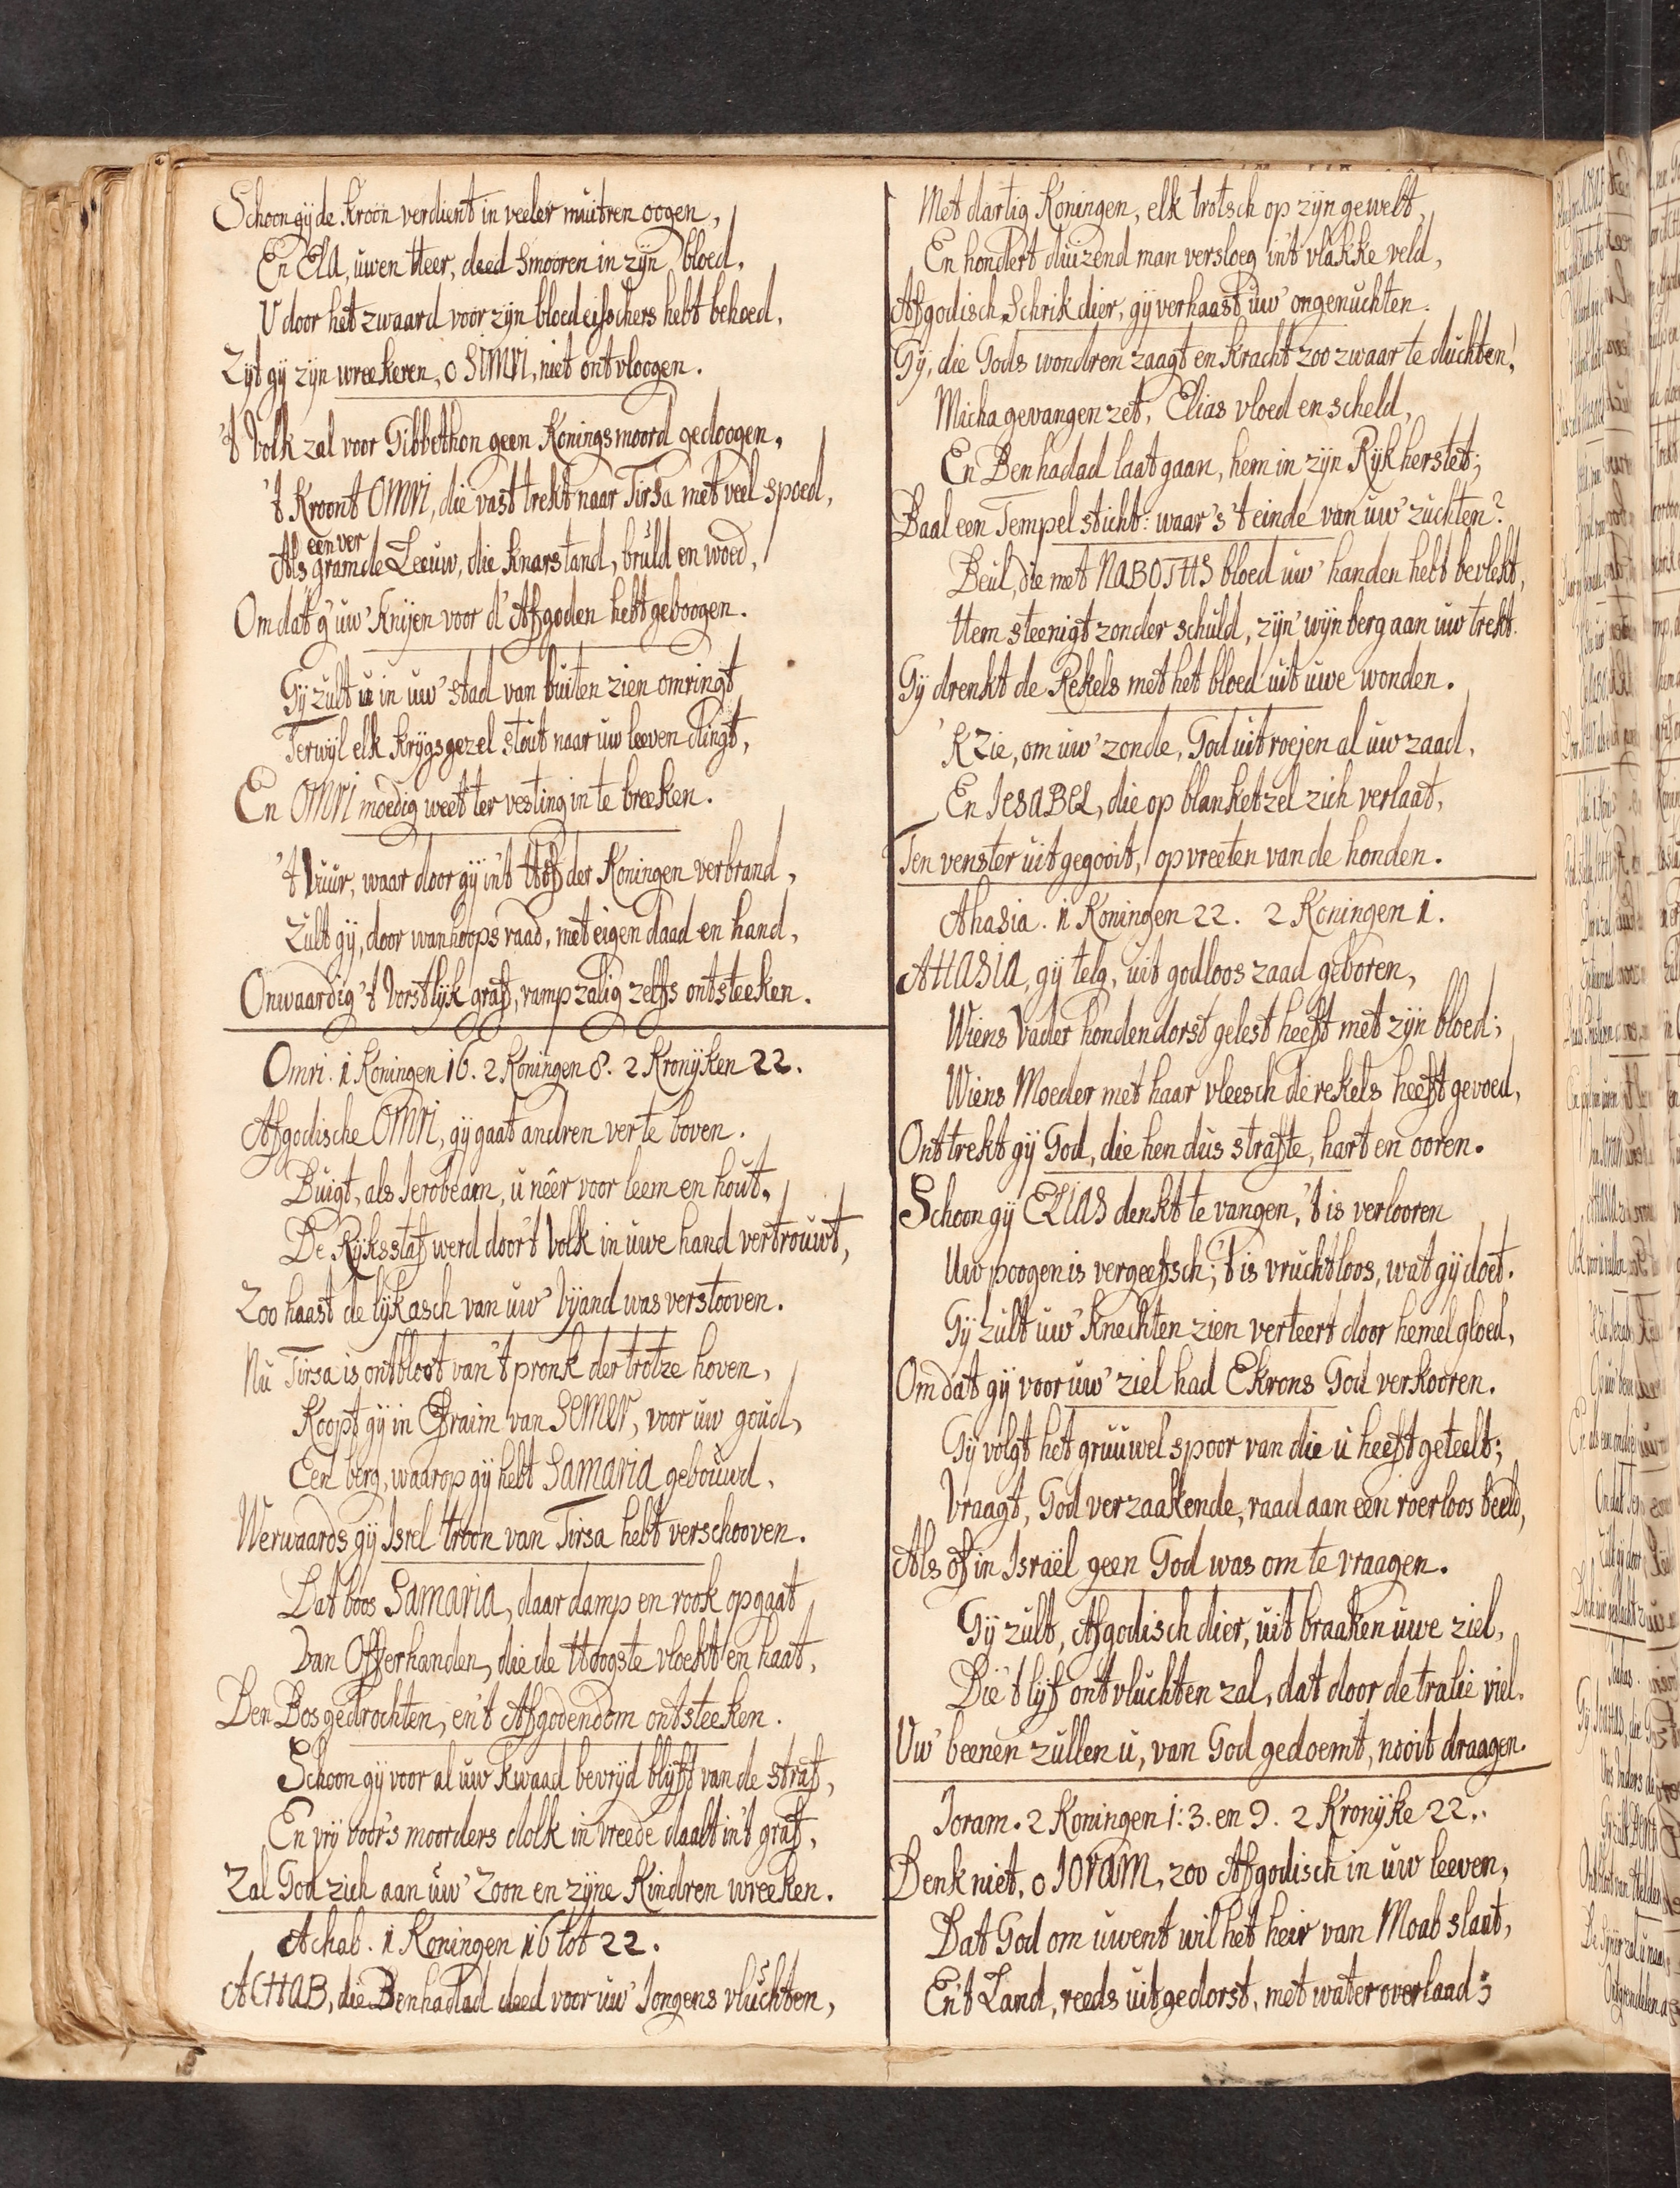 Schoon gij de kroon verdient in veeler muitren oogen,
En Ela, uwen Heer, deed smooren in zijn bloed,
U door het zwaard voor zijn bloedeisschers hebt behoed,
Zijt gij zijn wreekeren, o SIMRI, niet ontvloogen.
't Volk zal voor Gibbethon geen Koningsmoord gedoogen,
't Kroont OMRI, die vast trekt naar Tirsa met veel spoed,
Als een ver gramde Leeuw, die knarstand, bruld en woed,
Omdat g'uw' Knijen voor d'Afgoden hebt geboogen.
Gij zult u in uw' stad van buiten zien omringt,
Terwijl elk krijgsgezel stout naar uw leeven dingt,
En OMRI moedig weet ter vesting in te breeken.
't Vuur, waar door gij in't Hof der Koningen verbrand,
Zult gij, door wanhoops raad, met eigen daad en hand,
Onwaardig 't Vorstlijk graf, rampzalig zelfs ontsteeken.
Omri. 1 Koningen 16. 2 Koningen 8. 2 Kronijken 22.
Afgodische OMRI, gij gaat andren ver te boven.
Buigt, als Jerobeam, u nêer voor leem en hout.
De Rijksstaf werd door't Volk in uwe hand vertrouwt,
Zoo haast de lijkasch van uw' vijand was verstooven.
Nu Tirsa is ontbloot van't pronk der trotze hoven,
Koopt gij in Efraim van SEMER, voor uw goud,
Een berg, waarop gij hebt Samaria gebouwd,
Werwaards gij Isrel troon van Tirsa hebt verschooven.
Dat boos Samaria, daar damp en rook opgaat
Van Offerhanden, die de Hoogste vloekt en haat,
Den Bosgedrochten, en't Afgodendom ontsteeken.
Schoon gij voor al uw kwaad bevrijd blijft van de straf,
En vrij voor's moorders dolk in vreede daalt in't graf,
Zal God zich aan uw' Zoon en zijne Kindren wreeken.
Achab. 1 Koningen 16 tot 22.
ACHAB, die Benhadad deed voor uw' Jongens vluchten,
Met dartig Koningen, elk trotsch op zijn gewelt,
En hondert duizend man versloeg in't vlakke veld,
Afgodisch Schrikdier, gij verhaast uw' ongenuchten.
Gij, die Gods wondren zaagt en kracht zoo zwaar te duchten!
Micha gevangen zet, Elias vloed en scheld,
En Benhadad laat gaan, hem in zijn Rijk herstet;
Baal een Tempel sticht: waar's 't einde van uw' zuchten?
Beul, die met NABOTHS bloed uw' handen hebt bevlekt,
Hem steenigt zonder schuld, zijn' wijnberg aan uw trekt.
Gij drenkt de Rekels met het bloed uit uwe wonden.
'K Zie, om uw' zonde, God uitroejen al uw zaad,
En JESABEL, die op blanketzel zich verlaat,
Ten venster uitgegooit, opvreeten van de honden.
Ahasia. 1 Koningen 22. 2 Koningen 1.
AHASIA, gij telg, uit godloos zaad geboren,
Wiens Vader hondendorst gelest heeft met zijn bloed;
Wiens Moeder met haar vleesch de rekels heeft gevoed,
Onttrekt gij God, die hen dus strafte, hart en ooren.
Schoon gij ELIAS denkt te vangen, 't is verlooren
Uw poogen is vergeefsch; 't is vruchtloos, wat gij doet.
Gij zult uw' Knechten zien verteert door hemelgloed,
Omdat gij voor uw' ziel had Ekrons God verkooren.
Gij volgt het gruuwelspoor van die u heeft geteelt;
Vraagt, God verzaakende, raad aan een roerloos beeld,
Als of in Israël geen God was om te vraagen.
Gij zult, Afgodisch dier, uit braaken uwe ziel,
Die 't lijf ontvluchten zal, dat door de tralie viel.
Uw' beenen zullen u, van God gedoemt, nooit draagen.
Joram. 2 Koningen 1: 3. en 9. 2 Kronijke 22.
Denk niet, o JORAM, zoo Afgodisch in uw leeven,
Dat God om uwent wil het heir van Moab slaat,
En't Land, reeds uitgedorst, met water overlaad;